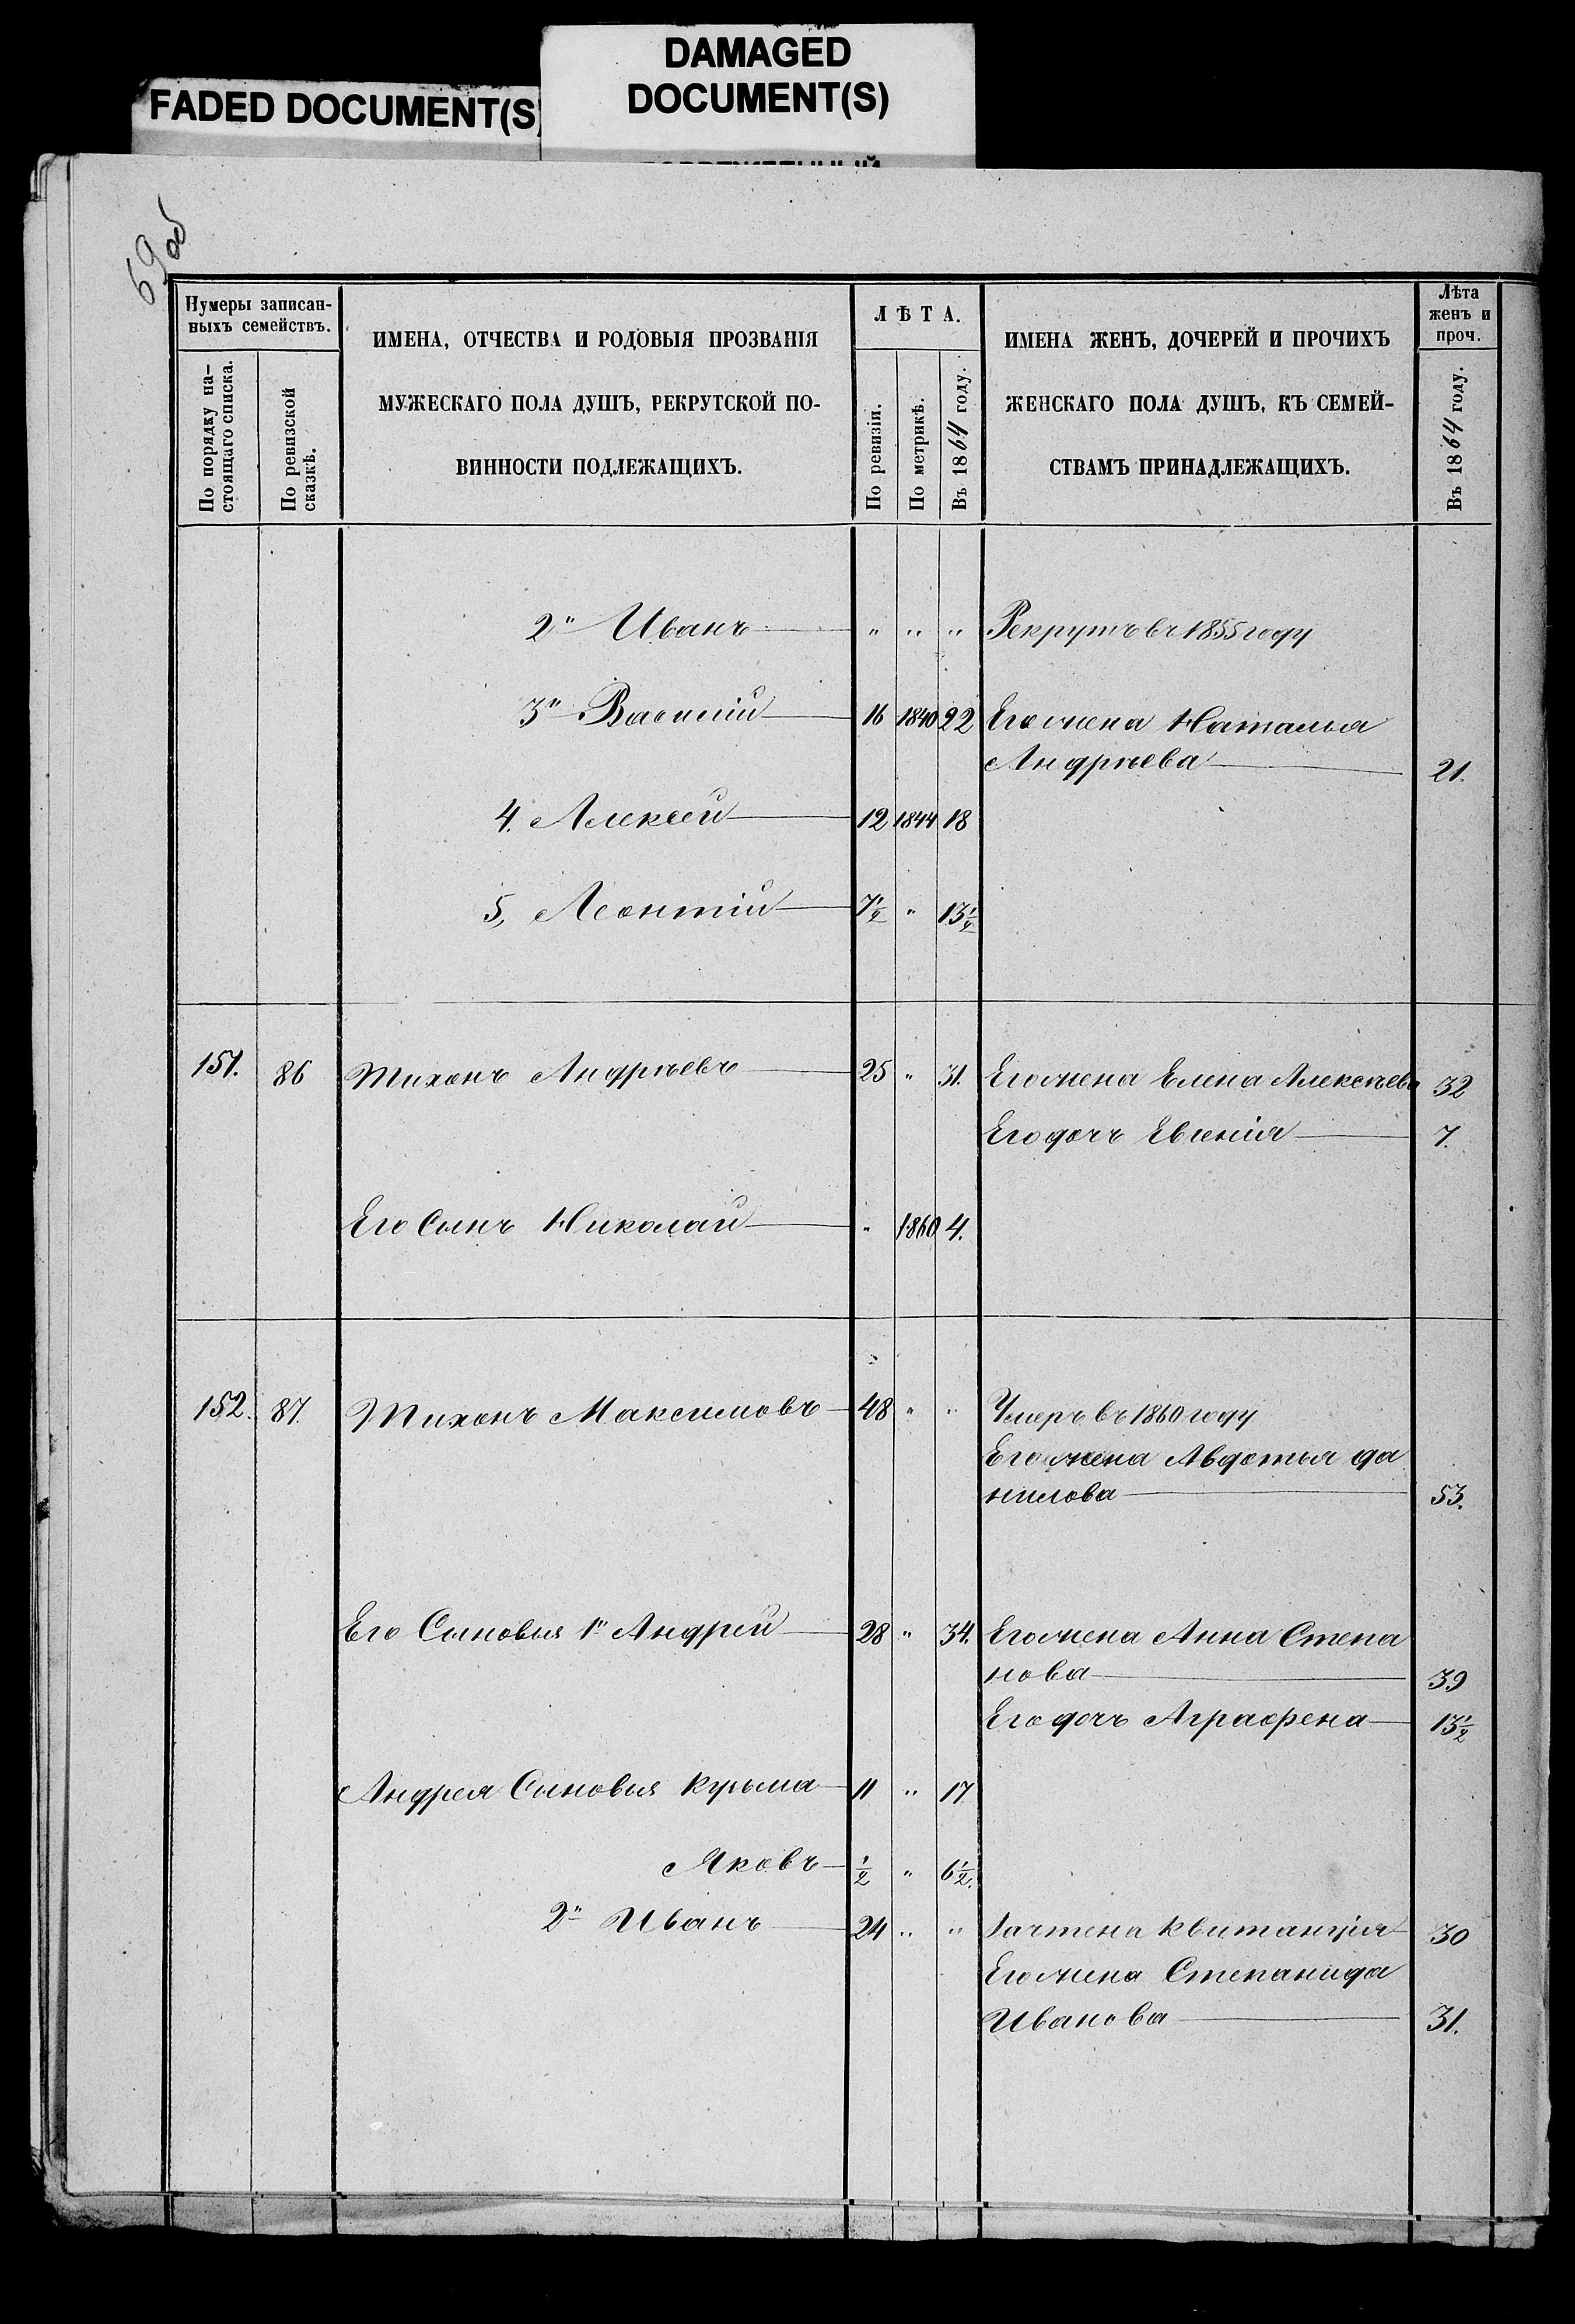 DAMAGED
DOCUMENT(S)
FADED DOCUMENT(S
69 об
Нумеры записан-
ныхъ семействъ.
По порядку на-
стоящаго списка.
По ревизской
сказкѣ.
ИМЕНА, ОТЧЕСТВА И РОДОВЫЯ ПРОЗВАНІЯ
МУЖЕСКАГО ПОЛА ДУШЪ, РЕКРУТСКОЙ ПО-
ВИННОСТИ ПОДЛЕЖАЩИХЪ.
ЛѢТА.
По ревизіи.
По метрикѣ.
Въ 1864 году.
ИМЕНА ЖЕНЪ, ДОЧЕРЕЙ И ПРОЧИХЪ
ЖЕНСКАГО ПОЛА ДУШЪ, КЪ СЕМЕЙ-
СТВАМЪ ПРИНАДЛЕЖАЩИХЪ.
Лѣта
женъ и
проч.
Въ 1864 году.
2" Иванъ " " " Рекрутъ въ 1855 году
3" Василій 16 1840 22 Его жена Наталья
Андрѣева 21.
4. Алексѣй 12 1844 18
5, Леонтій 7½ " 13½
151. 86 Тихонъ Андрѣевъ 25 " 31. Его жена Елена Алексѣева 32
Его дочь Евгенія 7.
Его Сынъ Николай " 1860 4.
152. 87. Тихонъ Максимовъ 48 " " Умеръ въ 1860 году
Его жена Авдотья Да
нилова 53.
Его Сыновья 1" Андрей 28 " 34. Его жена Анна Степа
нова 39
Его дочь Аграфена 13½
Андрея Сыновья Кузьма 11 " 17
Яковъ ½ " 6½.
2" Иванъ 24 " " Зачтена квитанція 30
Его жена Степанида
Иванова 31.